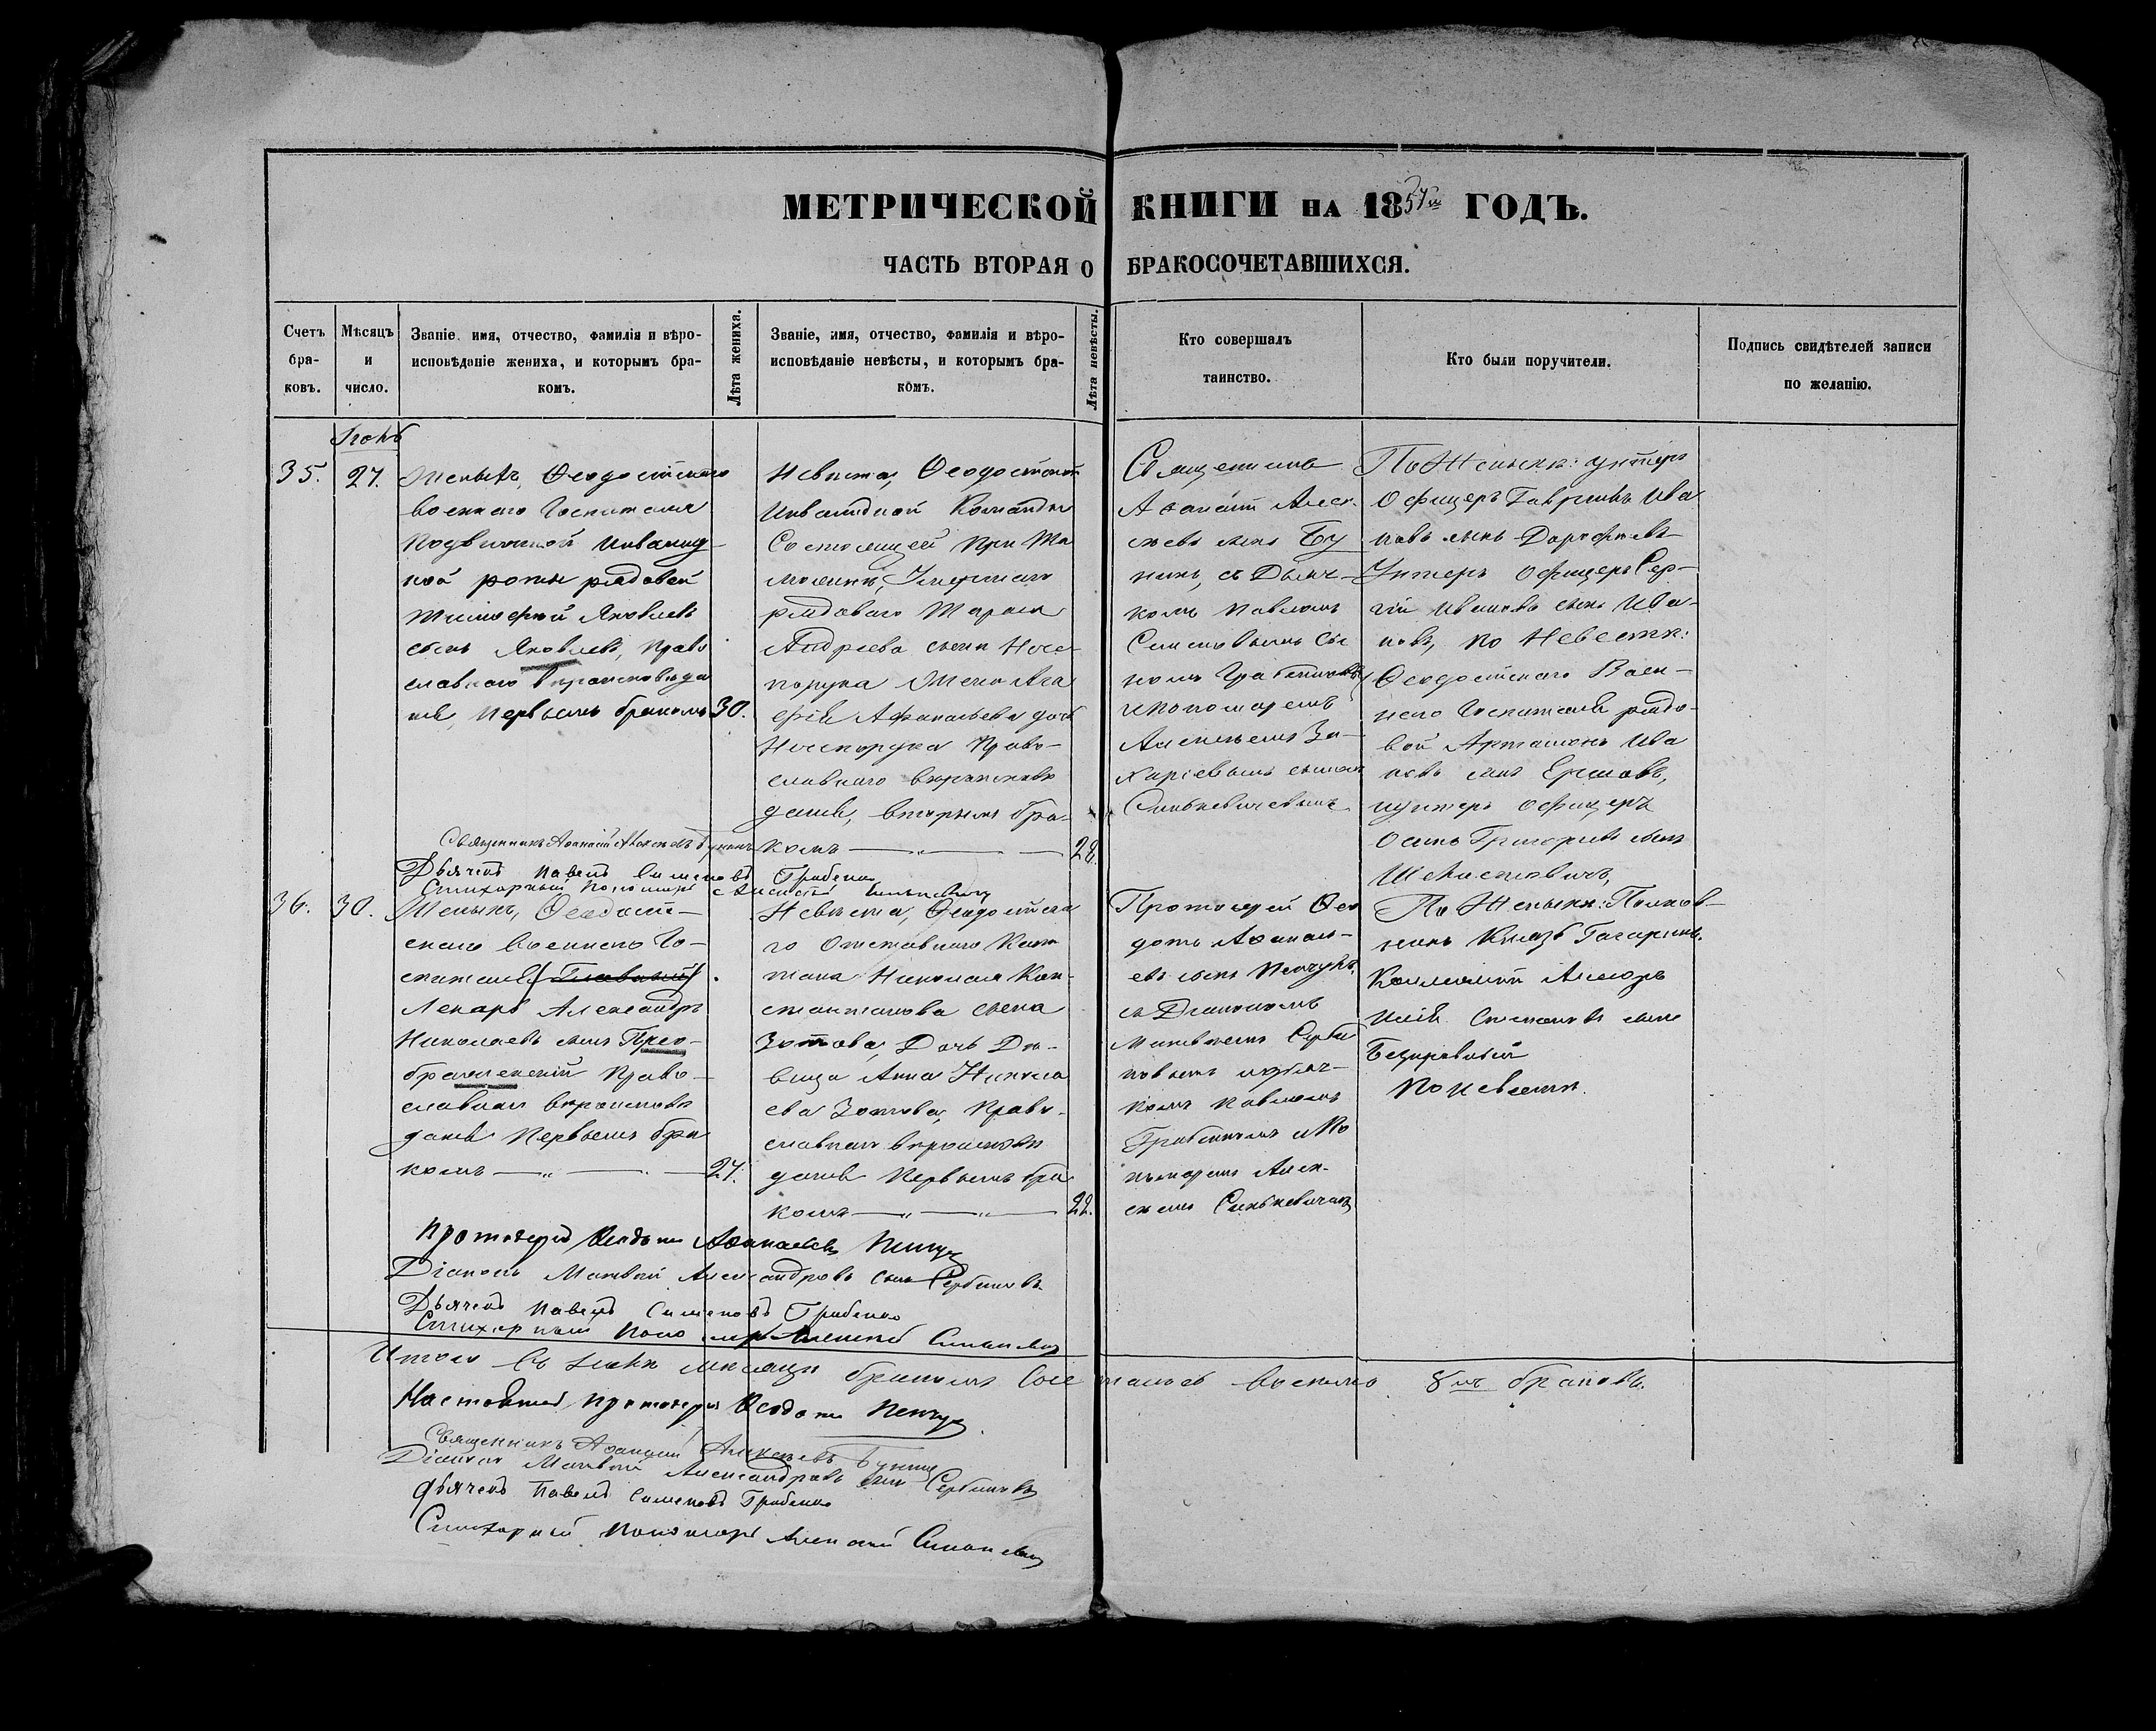 МЕТРИЧЕСКОЙ КНИГИ НА 1857й ГОДЪ.
ЧАСТЬ ВТОРАЯ О БРАКОСОЧЕТАВШИХСЯ.
Счетъ бра-ковъ.
Мѣсяцъ и число.
Званіе, имя, отчество, фамилія и вѣро-
исповѣданіе жениха, и которымъ бра-
комъ.
Лѣта жениха.
Званіе, имя, отчество, фамилія и вѣро-
исповѣданіе невѣсты, и которымъ бра-
комъ.
Лѣта невѣсты.
Кто совершалъ
таинство.
Кто были поручители.
Подпись свидѣтелей записи
по желанію.
35.
27.
Женихъ, Ѳеодосійскаго
военнаго Госпиталя
подвижной инвалид
ной роты рядовой
Тимофей Яковлевъ
сынъ Яковлевъ, право
славнаго вѣроисповѣда
нія, первымъ бракомъ
30.
Невѣста, Ѳеодосійской
Инвалидной Команды
Состоящей при Та
можни,
рядоваго Тараса
Андреева сына Несе
порука Жена Ага
фія Афанасьева дочь
Несепорука Право-
славнаго вѣроисповѣ
данія, вторымъ бра-
комъ
28.
Священникъ
Аѳанасій Алек-
сѣевъ сынъ Бу
нинъ, съ Дьяч-
комъ Павломъ
Симеоновымъ сы
номъ Грабенкомъ
и пономаремъ
Алексѣемъ За-
харіевымъ сыномъ
Синькевичемъ
По Женихѣ: унтеръ
Офицеръ Гаврилъ Ива
новъ сынъ Дорофѣевъ
Унтеръ офицеръ Сер-
гій Ивановъ сынъ Ива-
новъ, по Невестѣ:
Ѳеодосійскаго Воен-
наго Госпиталя рядо-
вой Артамонъ Ива
новъ сынъ Ершовъ,
и унтеръ офицеръ
Осипъ Григорьевъ сынъ
Священникъ Аѳанасій Алексѣевъ Бунинъ
Дьячекъ Павелъ Симеоновъ Грабенко
Стихарный Пономарь Алексѣй Синькевичъ
36.
30.
Женихъ, Ѳеодосій-
скаго военнаго Го-
спиталя Главный
Лекарь Александръ
Николаевъ сынъ Прео-
браженскій право-
славнаго вѣроисповѣ
данія первымъ бра
комъ
27.
Невѣста, Ѳеодосійска
го Отставнаго Капи
тана Николая Кон-
стантинова сына
Зотова, Дочь Дѣ-
вица Анна Никола
ева Зотова, право-
славнаго вѣроисповѣ
данія первымъ бра
комъ
22.
Протоіерей Ѳео
дотъ Аѳанась-
евъ сынъ Пенчукъ,
съ Діакономъ
Матвѣемъ Серби
новымъ и дьяч-
комъ Павломъ
Грабенкомъ и По
номаремъ Алек-
сѣемъ Синькевичемъ
По Женихѣ: Полков-
никъ Князь Гагаринъ.
Степановъ сынъ
По невестѣ.
Протоіерей Ѳеодотъ Аѳанасьевъ Пенчукъ
Діаконъ Матвей Александровъ сынъ Сербиновъ
Дьячекъ Павелъ Симеоновъ Грабенко
Стихарный Пономарь Алексѣй Синькевичъ
Итого въ Іюнѣ мѣсяцѣ бракомъ сочетались восемь 8мь браковъ.
Настоятель Протоіерей Ѳеодотъ Пенчукъ
Священникъ Аѳанасій Алексѣевъ Бунинъ
Діаконъ Матвей Александровъ сынъ Сербиновъ
Дьячекъ Павелъ Симеоновъ Грабенко
Стихарный Пономарь Алексѣй Синькевичъ